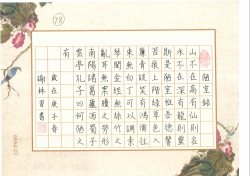 78
陋室銘
山不在高有仙則名
水不在深有龍則靈
斯是陋室惟吾德馨
苔痕上階綠草色入
簾青談笑有鴻儒往
來無白丁可以調素
琴閱金經無絲竹之
亂耳無案牘之勞形
南陽諸葛廬西蜀子
雲亭孔子曰何陋之
有
歲在庚子春
謝林習書